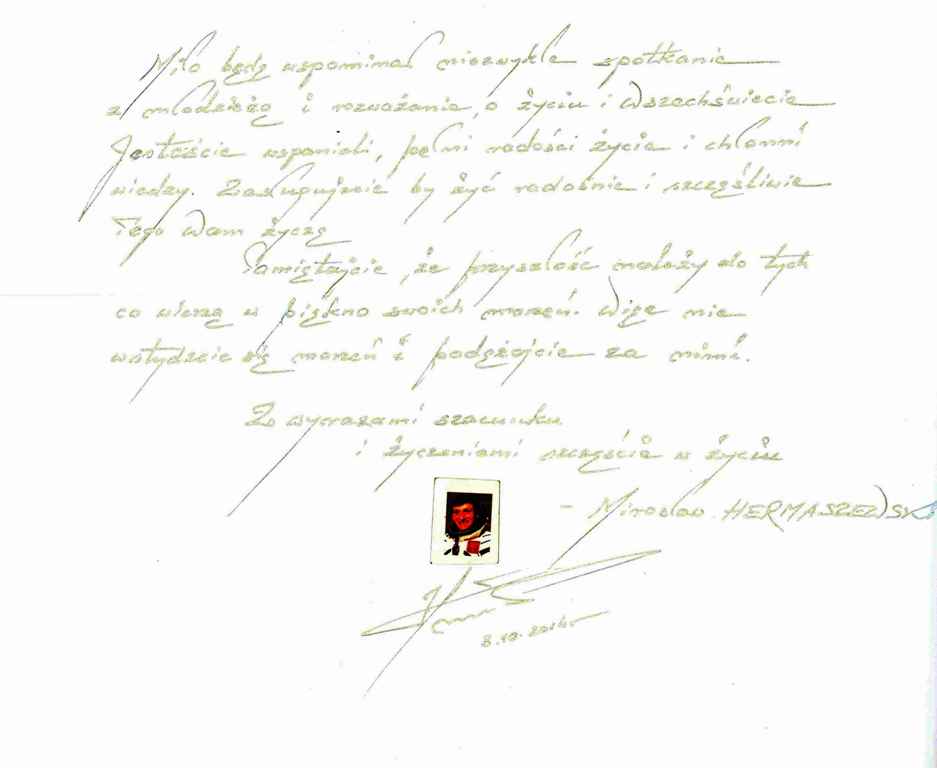 Miło będę wspominał niezwykłe spotkanie
z młodzieżą i rozważania o życiu i Wszechświecie
Jesteście wspaniali, pełni radości życia i chłonni
wiedzy. Zasługujecie by żyć radośnie i szczęśliwie
Tego Wam życzę
Pamiętajcie, że przyszłość należy do tych
co wierzą w piękno swoich marzeń. Więc nie
wstydźcie się marzeń i podążajcie za nimi.
Z wyrazami szacunku
i życzeniami szczęścia w życiu
- Mirosław HERMASZEWSKI
8.10.2014r